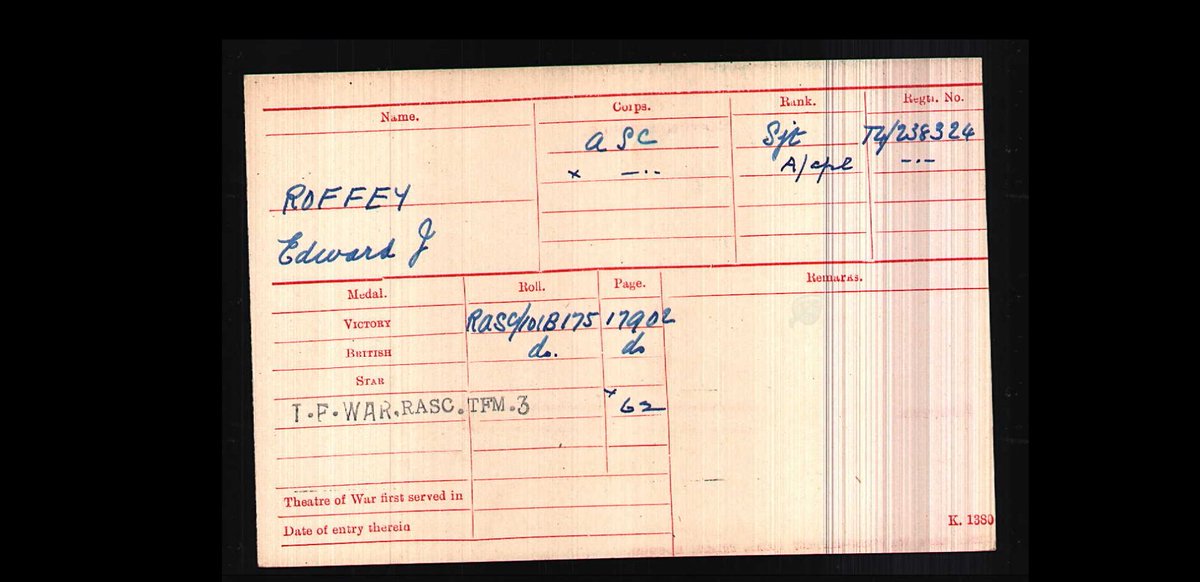 Name. Corps. Rank. Regtl. No.
ASC Sjt T4/238324
x -·· A/cpl -·-
ROFFEY
Edward J
Medal. Roll. Page. Remarks.
VICTORY RASC/101B175 17902
BRITISH do. do
STAR
T.F.WAR.RASC.TFM.3 x 62
Theatre of War first served in
Date of entry therein
K. 1380